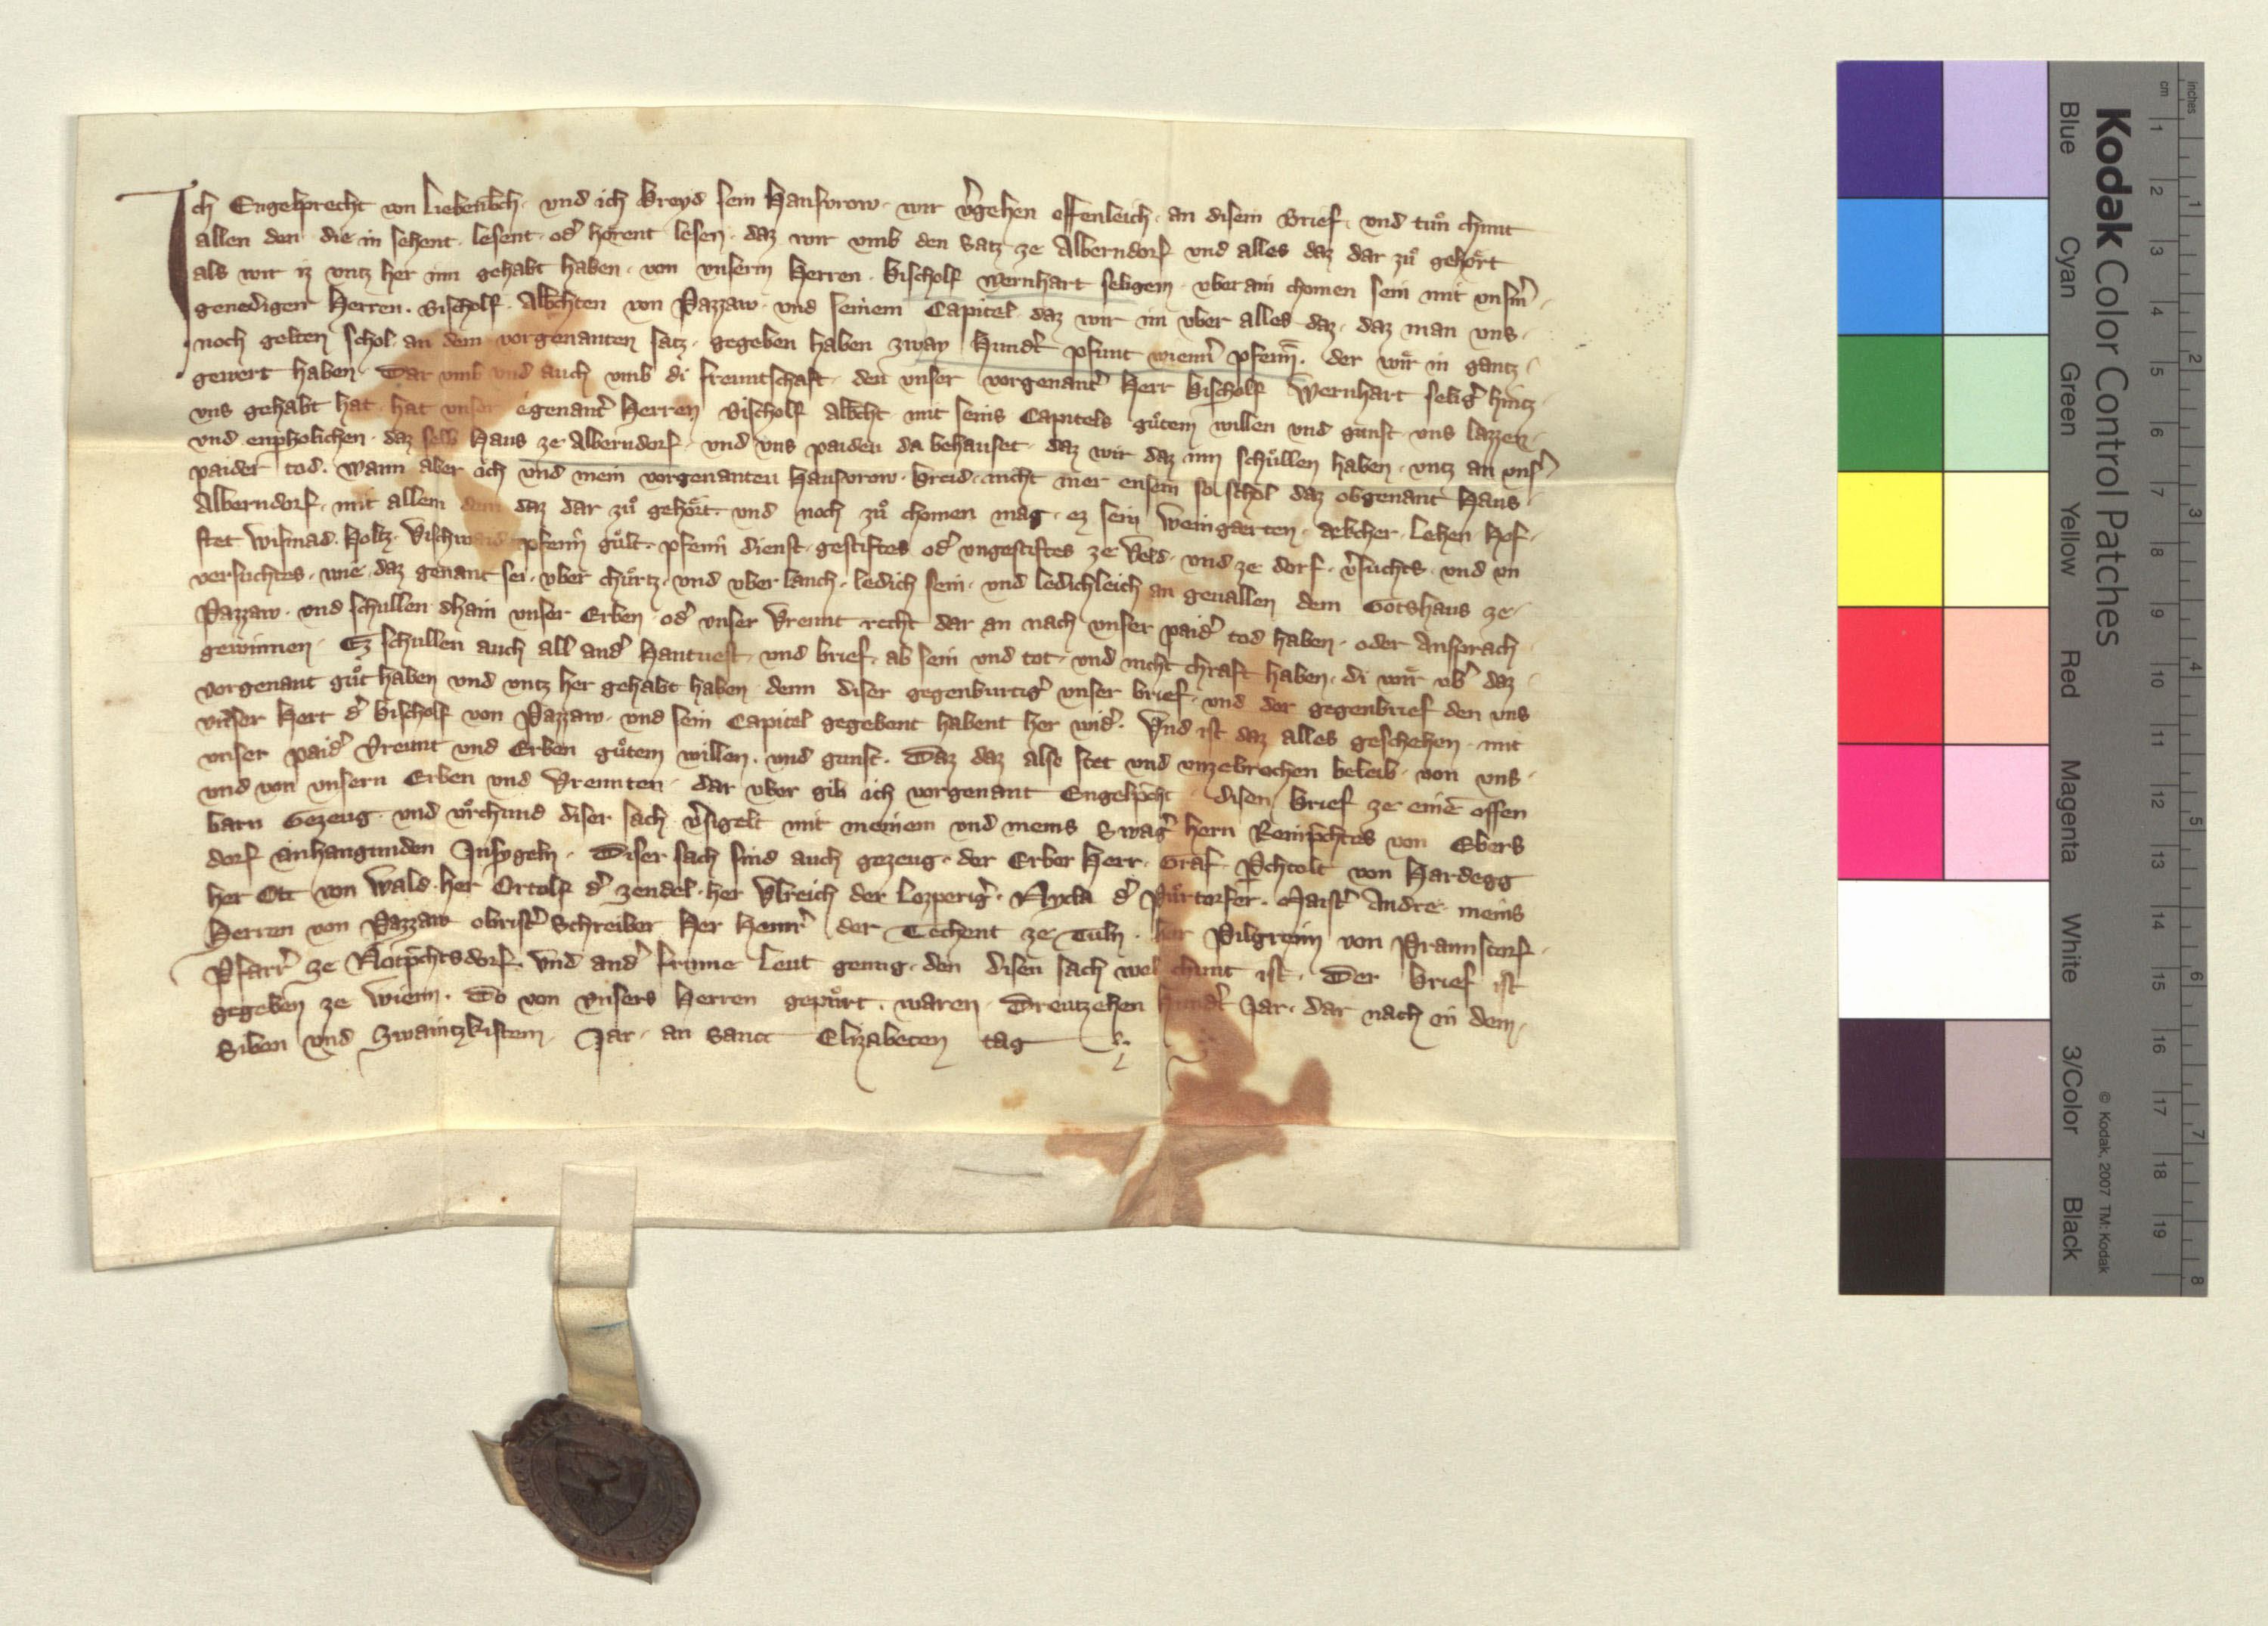 Ich Engelprecht von Liebenbch · und ich Breyd sein Hausvrow · wir v̾gehen offenleich · an disem Brief · und tůn chunt
allen den die in sehent · lesent · od̾ hörent lesen · daz wir umb den Satz ze Alberndorf und alles daz dar zů gehört
als wir iz untz her inn gehabt haben · von unserm Herren · Bischolf Wernhart seligem · uberain chomen sein mit unsm̾
genedigen Herren · Bischolf · Albchten von Pazzaw · und seinem Capitel daz wir im uber alles daz · daz man uns ·
noch gelten schol · an dem vorgenanten satz · gegeben haben zway Hund̾t pfunt wienn̾ pfenn̄ · der wir in gantz
gewert haben · Dar umb und auch umb di freuntschaft · den unser vorgenant̾ Herr Bischolf Wernhart selig̾ hintz
uns gehabt hat · hat unser egenant̾ Herren Bischolf Albcht · mit seins Capitels gůtem willen und gunst · uns lazzen
und enpholichen · daz selb Haus ze Alberndorf · und uns paiden da behauset · daz wir daz inn schůllen haben · untz an uns̾
paider tod · Wann aber ich und mein vorgenanten Hausvrow · Breid · nicht mer ensein so schol daz obgenant Haus ·
Alberndorf · mit allem dem daz dar zů gehört · und noch zů chomen mag · ez sein Weingaerten · aekcher · Lehen · Hof ·
stet Wismad · Holtz · Vischwaid pfenn̄ gůlt · pfenn̄ dienst · gestiftes od̾ ungestiftes ze Veld · und ze dorf · v̾suchts · und un
versuchtes · wie daz genant sei · uber chůrtz · und uber lanch · ledich sein · und ledichleich an gevallen dem Gotshaus ze
Pazzaw · und schullen dhain unser Erben · od̾ unser Vreunt recht dar an nach unser paid̾ tod haben · oder Ansprach
gewinnen · Ez schullen auch all and̾ Hantvest · und brief · ab sein und tot · und nicht chraft haben · di wir ub̾ daz
vorgenant gůt haben und untz her gehabt haben denn diser gegenburtig̾ unser brief · und der gegenbrief den uns
unser Herr d̾ Bischolf von Pazzaw · und sein Capitel gegebent habent her wid̾ · Und ist daz alles geschehen · mit
unser paid̾ Vreunt und Erben gůtem willen · und gunst · Daz daz alse stet und unzebrochen beleib · von uns ·
und von unsern Erben und Vreunten · dar uber gib ich vorgenant Engelp̄cht · disen brief ze einē offen
barn Gezeug · und ůrchund diser sach v̾sigelt mit meinem und meins Swag̾ hern Reinp̄chtes von Ebers
dorf anhangunden Insygeln · Diser sach sind auch gezeug · der Erber Herr · Graf · P̄chtolt von Hardegg
her Ott von Wald · her Ortolf d̾ Zendel · her Ulreich der Lozperig̾ · Nycla d̾ Půrtorfer · Maist̾ Andre · meins
Herren von Pazzaw obrist̾ Schreiber Her Heinr̾ der Techent ze Tuln · her Pilgreim von Prannstorf ·
Pfarr̾ ze Rotp̄chtsdorf · Und and̾ frume Leut genug · den disen sach wol chunt ist · Der brief ist
gegeben ze Wienn · Do von unsers Herren gepůrt · waren · Dreutzehen Hund̾t Jar · dar nach in dem ·
Siben und Zwaintzkistem · Jar · an Sanct Elizabeten tag
Kodak Color Control Patches
Blue Cyan Green Yellow Red Magenta White 3/Color Black
© Kodak, 2007 TM: Kodak
cm 1 2 3 4 5 6 7 8 9 10 11 12 13 14 15 16 17 18 19
inches 1 2 3 4 5 6 7 8